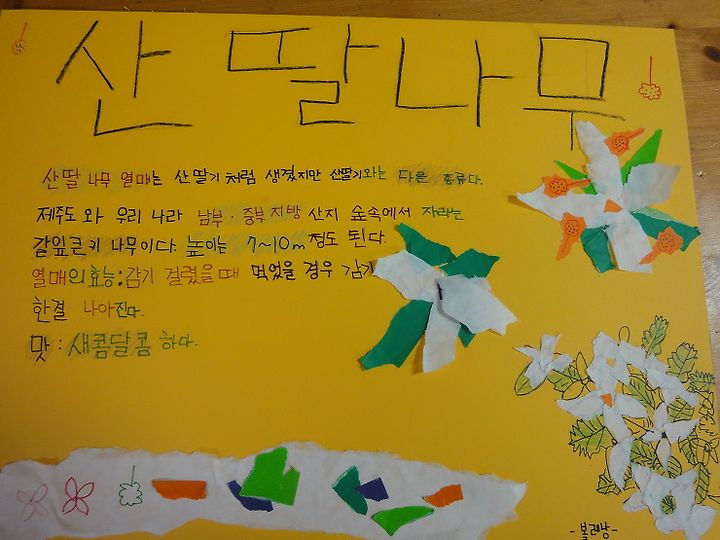 산딸나무
산딸 나무 열매는 산딸기 처럼 생겼지만 산딸기와는 다른 종류다.
제주도 와 우리 나라 남부·중부 지방 산지 숲속에서 자라는
갈잎큰키 나무이다. 높이는 7~10m 정도 된다.
열매의 효능: 감기 걸렸을때 먹었을 경우 감기
한결 나아진다.
맛: 새콤달콤 하다.